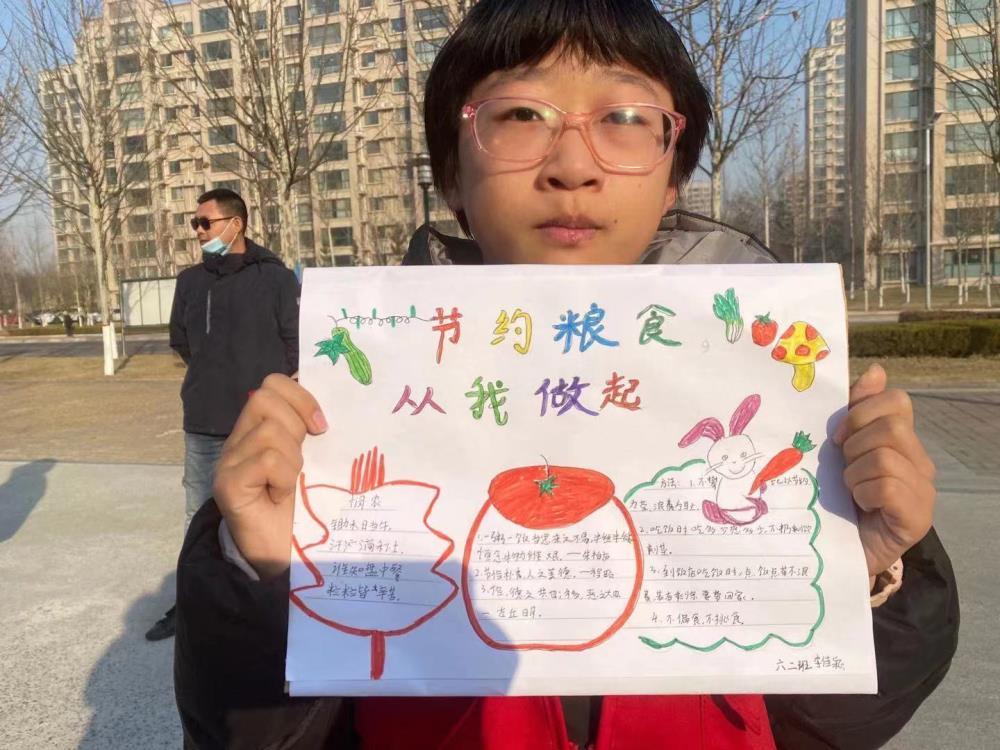 节约粮食
从我做起
悯农
锄禾日当午,
汗滴禾下土。
谁知盘中餐
粒粒皆辛苦。
1.一粥一饭当思来之不易,半丝半缕
恒念物力维艰 — 朱柏庐
2.节俭朴素,人之美德,
3.俭,德之共也;侈,恶之大也
— 左丘明。
方法: 1.不攀
为荣,浪费为耻。
2.吃饭时吃多少
剩菜。
3.到饭店吃饭时,点饭点菜不浪
费,若有剩余,要带回家。
4.不偏食,不挑食。
六二班